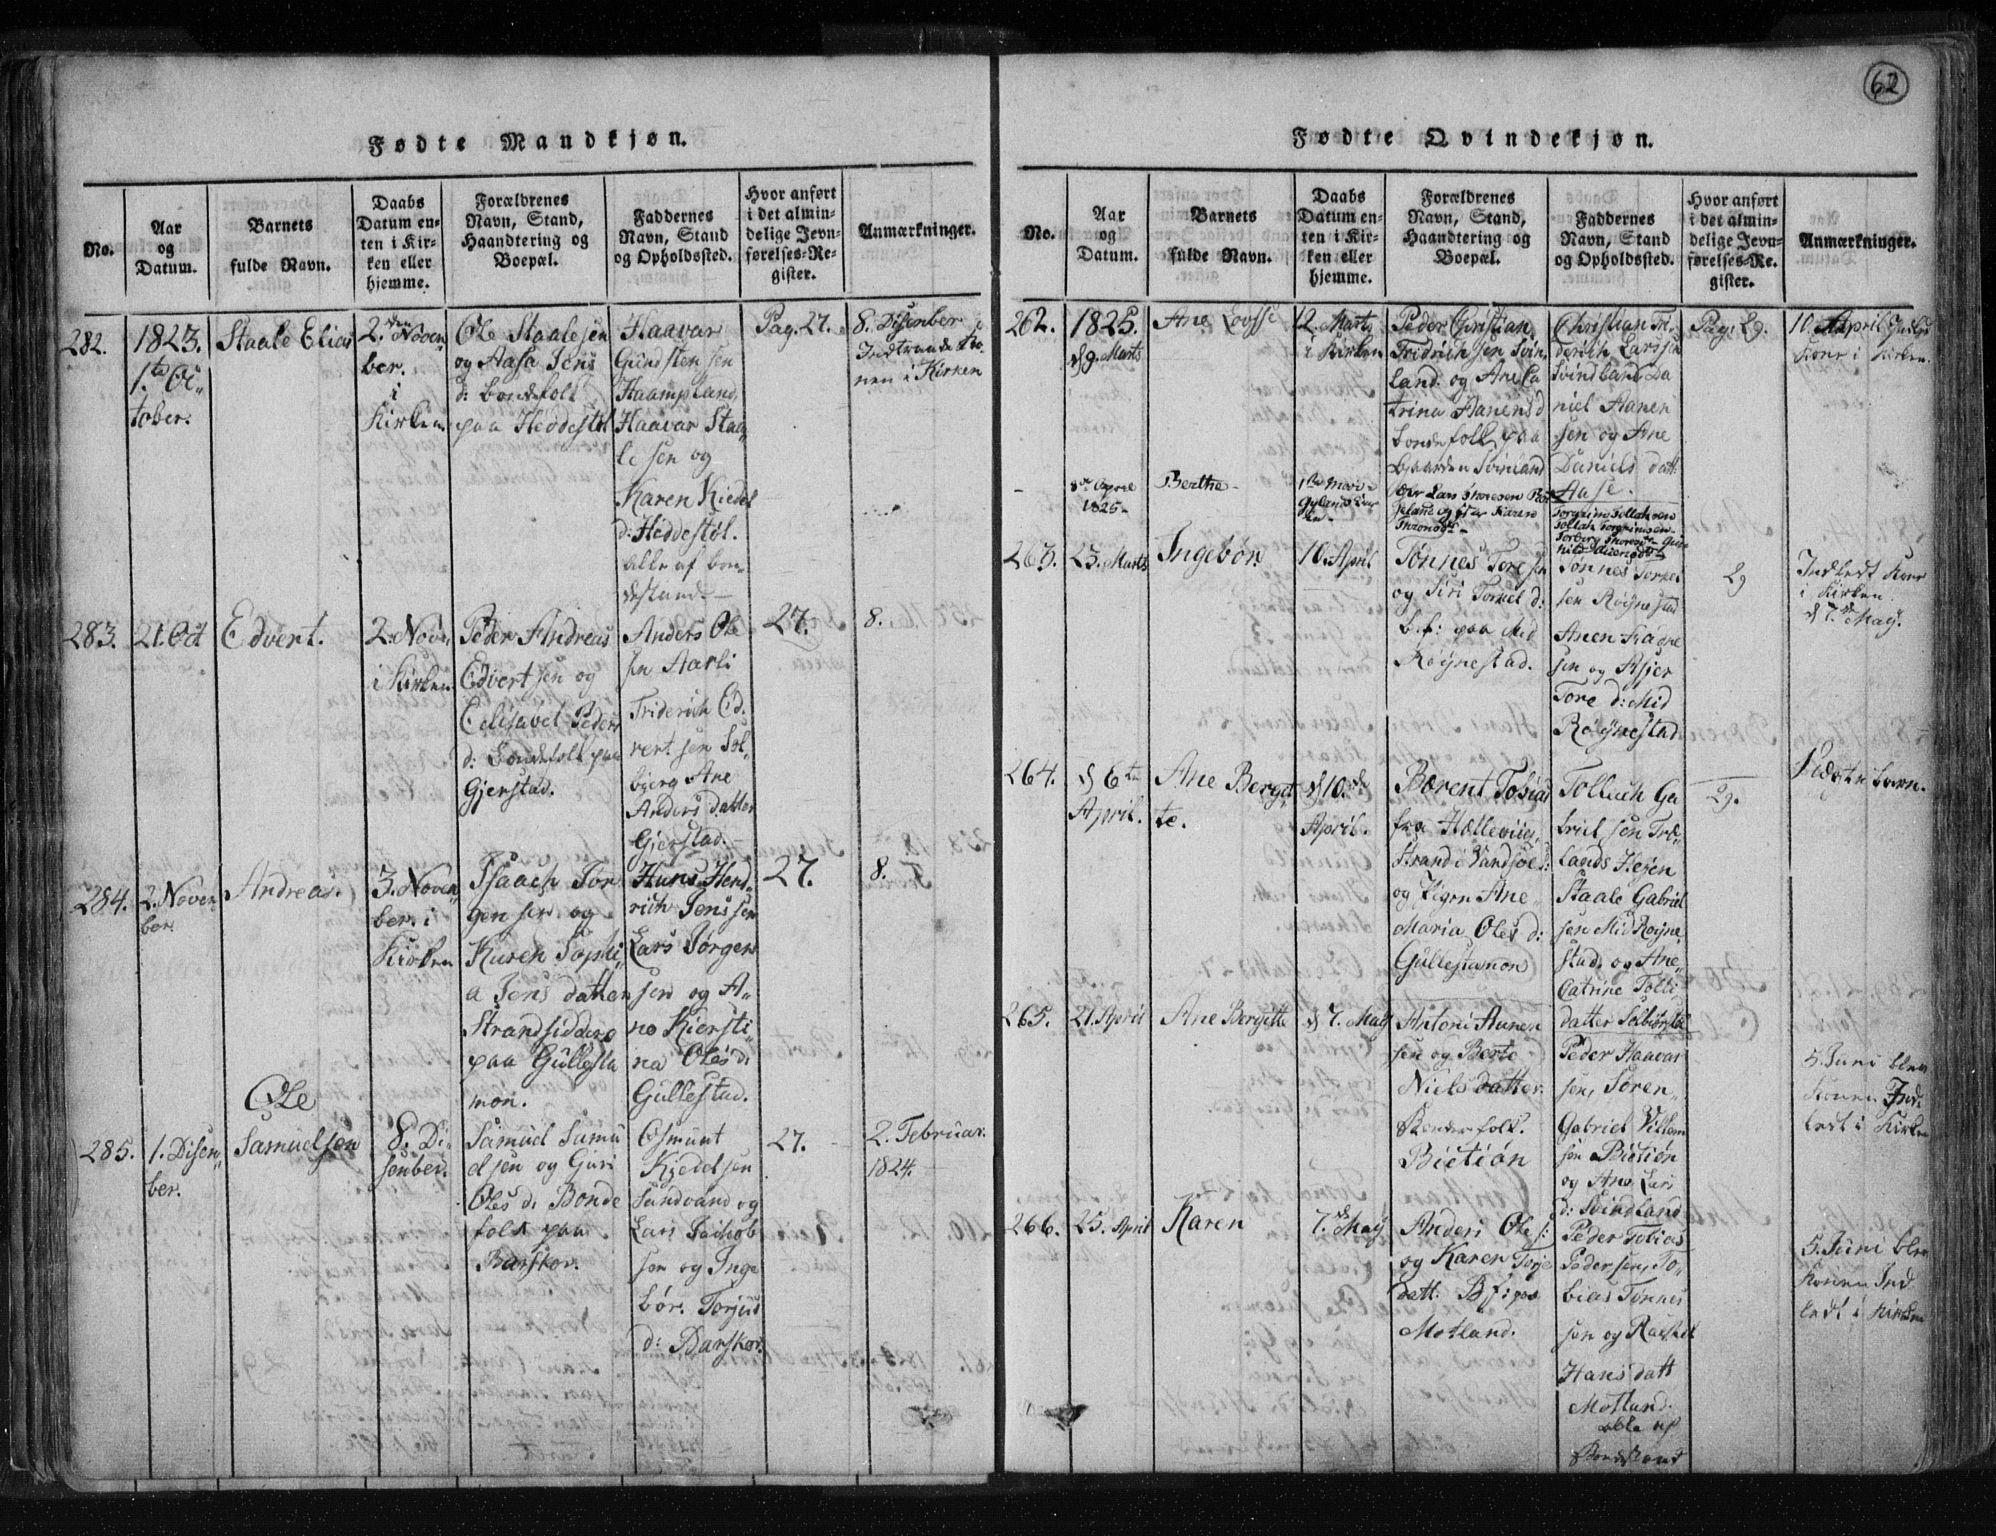 62
Fødte Mandkjøn.
No.
Aar
og
Datum.
Barnets
fulde Navn.
Daabs
Datum en-
ten i Kir-
ken eller
hjemme.
Forældrenes
Navn, Stand,
Haandtering og
Boepæl.
Faddernes
Navn, Stand
og Opholdssted.
Hvor anført
i det almin-
delige Jevn-
førelses-Re-
gister.
Anmærkninger.
282.
1823.
1.te Oc
tober.
Staale Elias
2.den Noven
ber.
i
Kirken
Ole Staalesen
og Aasa Jens
d: bondefolk
paa Heddestøl
Haavar
Gunsten sen
Haampland,
Haavar Staa
le sen og
Karen Kiedel
d: Heddestøl.
alle af bon
destand.
Pag. 27.
8. Disenber
nen i Kirken
283.
21. Oct
Edvert.
2. Nove
i Kirken
Peder Andreas
Edvert sen og
Elisavet Peders
d: bondefolk paa
Gjerstad.
Anders Ole
sen Aarli
Friderich Ed.
vert sen Sol
bjerg Ane
Anders datter
Gjerstad.
27.
8.
284.
2. Noven
ber
Andreas.
3. Noven
ber. i
Kirken
Isaach Jør
gen sen og
Karen Sophi
a Jens datter
Strandsiddere
paa Gullesta
mon.
Hans Hend
rich Jens sen
Lars Jørgen
sen og A
ne Kiersti
na Oles d:
Gullestad.
27.
8.
285.
1. Disen
ber.
Ole
Samuelsen
8. Di
senber.
Samuel Samu
elsen og Guri
Oles d: Bonde
folk paa
Barskor.
Osmunt
Kjedel sen
Sundvand og
Lars Jachob
sen og Inge
bør. Torjus
d: Barskor.
27.
2. Februar.
1824.
Fødte Qvindekjøn.
No.
Aar
og
Datum.
Barnets
fulde Navn.
Daabs
Datum en-
ten i Kir-
ken eller
hjemme.
Forældrenes
Navn, Stand,
Haandtering og
Boepæl.
Faddernes
Navn, Stand
og Opholdssted.
Hvor anført
i det almin-
delige Jevn-
førelses-Re-
gister.
Anmærkninger.
262.
1825.
d 9. Marts
Ane Lovise
12. Marts
i Kirken
Peder Christian
Fridrich sen Svin
land. og Ane Ca
trina Aanens d
bondefolk paa
Gaarden Svinland
Christian Fri
derich Lars sen
Svindland, Da
niel Aanen
sen og Ane
Daniels datt
Aase.
Pag. 29.
10 April
Kone i Kirken.
8de April
1825
Berthe
1ste Mai
Gylands
Lars Thoresen
og Karen
Torgrim Tollaksen
Tollak Torgrimsen
263.
23. Marts
Ingebør
10. April
Tønnes Tore sen
og Siri Torkel d:
b. f: paa Mid
Røynestad.
Tønnes Torkel
sen Røynestad
Anen Aagne
sen og Asjer
Tore d: Mid
Røynestad
29
Indledt Kone
i Kirken
d 7. May.
264.
d 6te
April.
Ane Bergit
te.
d 10de
April.
Berent Tobias
fra Hellevig
Strand i Vandsøe S:
og Pigen Ane
Maria Oles d:
Gullestamon
Tollach Ga
briel sen Træ
lands Hejen
Staale Gabriel
sen Mid Røyne
stad, og Ane
Catrine Tolli
datter Solbiørstøl
29.
Uægte barn.
265.
21. April
Ane Bergitte
d 7. May
Antoni Aanen
sen og Berte
Niels datter.
Bønder folk.
Bietiøn
Peder Haavar
sen, Søren
Gabriel Villom
sen Bietiøn
og Ane Lars
d: Svindland
5. Juni blev
Konen Ind
ledt i Kirken
266.
25. April
Karen
7. May
Anders Ole s:
og Karen Torje
datt. B f: paa
Motland.
Peder Tobias
Peder sen, To
bias Tønnes
sen og Rachel
Hans datt
Motland.
alle af
Bondestand
5. Juni blev
Konen Ind
ledt i Kirken